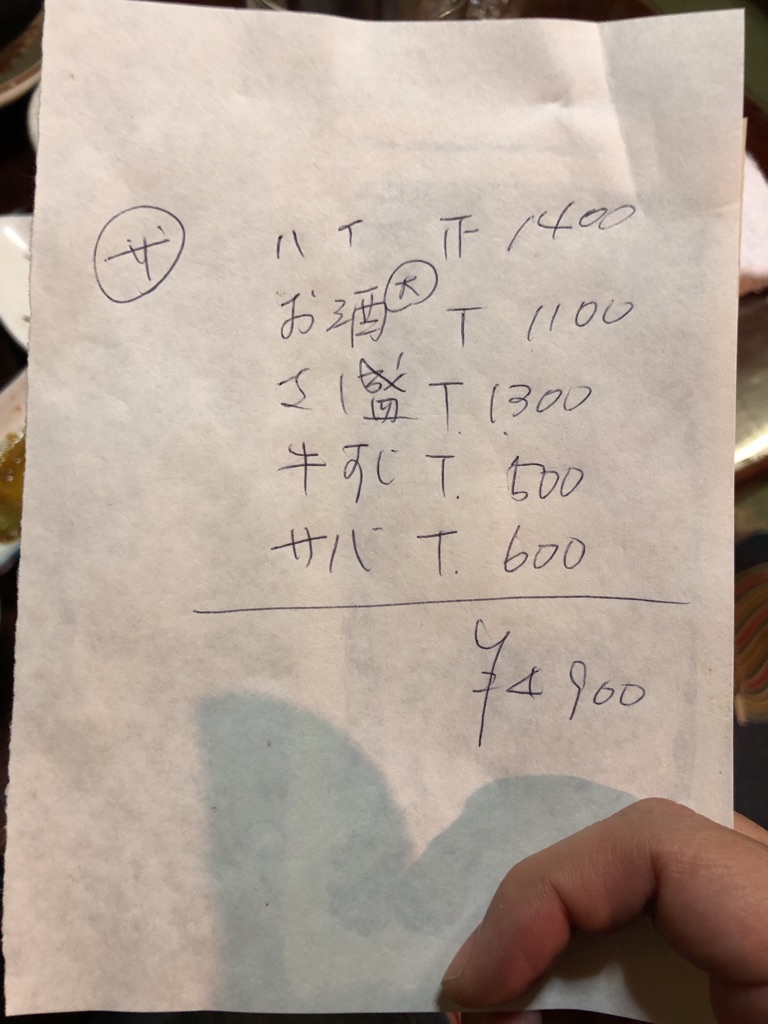 ザ ハイ 正 1400
お酒大 T 1100
さし盛 T. 1300
牛すじ T. 500
サバ T. 600
¥4900